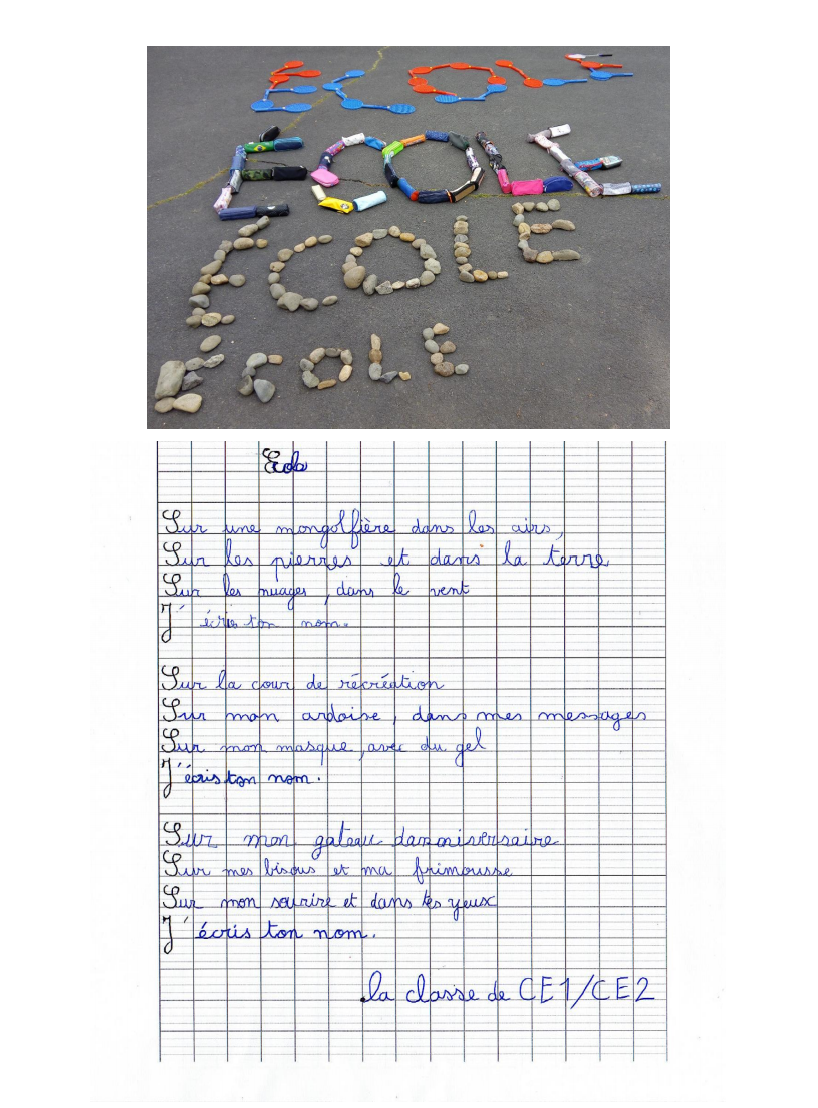 ECOLE
ÉCOLE
ÉCOLE
ÉCOLE
Ecole
Sur une mongolfière dans les airs,
Sur les pierres et dans la terre
Sur les nuages, dans le vent
J'écris ton nom.
Sur la cour de récréation
Sur mon ardoise, dans mes messages
Sur mon masque, avec du gel
J'écris ton nom.
Sur mon gateau danniversaire
Sur mes bisous et ma frimousse
Sur mon sourire et dans tes yeux
J'écris ton nom.
la classe de CE1/CE2